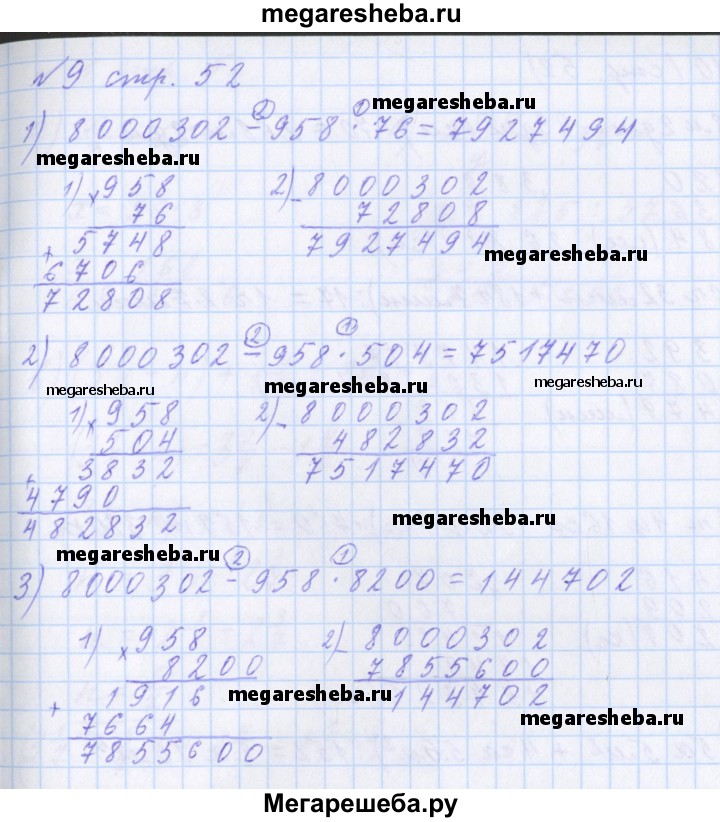 megaresheba.ru
№9 стр. 52
② ① megaresheba.ru
1) 8000302 - 958 · 76 = 7927494
megaresheba.ru
1) × 958 2) - 8000302
76 72808
+ 5748 7927494 megaresheba.ru
6706
72808
② ①
2) 8000302 - 958 · 504 = 7517470
megaresheba.ru megaresheba.ru megaresheba.ru
1) × 958 2) - 8000302
504 482832
+ 3832 7517470
4790
482832 megaresheba.ru
megaresheba.ru ② ①
3) 8000302 - 958 · 8200 = 144702
1) × 958 2) - 8000302
8200 7855600
+ 1916 megaresheba.ru 144702
7664 megaresheba.ru
7855600
Мегарешеба.ру